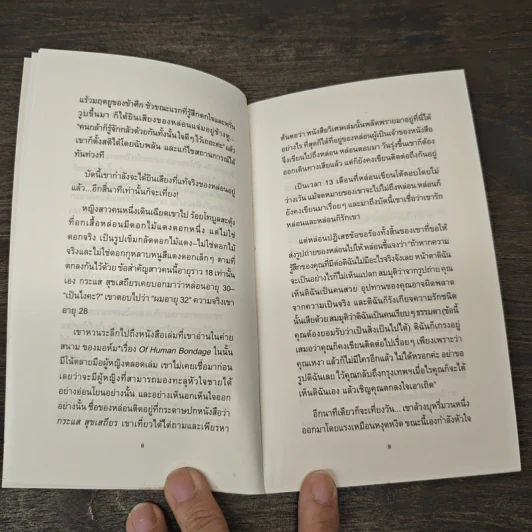 แร้วมฤตยูของข้าศึก ชั่วขณะแรกที่รู้สึกตกใจและพรั่น
วูมขึ้นมา ก็ได้ยินเสียงของหล่อนแจ่มอยู่ข้างหู—
"คนกล้าก็รู้จักกลัวด้วยกันทั้งนั้นใจดีๆ ไว้เถอะค่ะ" แล้ว
เขาก็ตั้งสติได้โดยฉับพลัน และแก้ไขสถานการณ์ได้
ทันท่วงที
บัดนี้เขากำลังจะได้ยินเสียงที่แท้จริงของหล่อนอยู่
แล้ว...อีกสี่นาทีเท่านั้นก็จะเที่ยง!
หญิงสาวคนหนึ่งเดินเฉียดเขาไป ร้อยโทบูลสะดุ้ง
ที่อกเสื้อหล่อนมีดอกไม้แดงดอกหนึ่ง แต่ไม่ใช่
ดอกจริง เป็นรูปเข็มกลัดดอกไม้แดง–ไม่ใช่ดอกไม้
จริงและไม่ใช่ดอกกุหลาบหนูสีแดงดอกเล็กๆ ตามที่
ตกลงกันไว้ด้วย ข้อสำคัญสาวคนนี้อายุราว 18 เท่านั้น
เอง กระแส สุขเสถียรเคยบอกมาว่าหล่อนอายุ 30–
"เป็นไงคะ?" เขาตอบไปว่า "ผมอายุ 32" ความจริงเขา
อายุ 28
เขาหวนระลึกไปถึงหนังสือเล่มที่เขาอ่านในค่าย
สนาม ของมอห์ม*เรื่อง Of Human Bondage ในนั้น
มีโน้ตลายมือผู้หญิงตลอดเล่ม เขาไม่เคยเชื่อมาก่อน
เลยว่าจะมีผู้หญิงที่สามารถมองทะลุหัวใจชายได้
อย่างอ่อนโยนอย่างนั้น และอย่างเห็นอกเห็นใจออก
อย่างนั้น ชื่อของหล่อนติดอยู่ที่กระดาษปกหนังสือว่า
กระแส สุขเสถียร เขาเที่ยวได้ไต่ถามและเพียรหา
8
ค้นตอว่า หนังสือวิเศษเล่มนั้นพลัดพรายมาอยู่ที่นี่ได้
อย่างไร ที่สุดก็ได้ที่อยู่ของหล่อนผู้เป็นเจ้าของหนังสือ
จึงเขียนไปถึงหล่อน หล่อนตอบมา วันรุ่งขึ้นเขาก็ต้อง
ออกเดินทางเสียแล้ว แต่ก็ยังคงเขียนติดต่อถึงกันอยู่
เป็นเวลา 13 เดือนที่หล่อนเขียนโต้ตอบโดยไม่
ว่างเว้น แม้จดหมายของเขาจะไปไม่ถึงหล่อน หล่อนก็
ยังคงเขียนมาเรื่อยๆ และมาถึงบัดนี้เขาเชื่อว่าเขารัก
หล่อนและหล่อนก็รักเขา
แต่หล่อนปฏิเสธข้อขอร้องทั้งสิ้นของเขาที่ขอให้
ส่งรูปถ่ายของหล่อนไปให้ หล่อนชี้แจงว่า "ถ้าหากความ
รู้สึกของคุณที่มีต่อดิฉันไม่มีอะไรจริงจังเลย หน้าตาดิฉัน
จะเป็นอย่างไรก็ไม่เห็นแปลก สมมุติว่าจากรูปถ่าย คุณ
เห็นดิฉันเป็นคนสวย อุปาทานของคุณอาจผิดพลาด
จากความเป็นจริง และดิฉันก็รังเกียจความรักชนิด
นั้นเสียด้วย สมมุติดิฉันเป็นคนเรียบๆ ธรรมดา(ข้อนี้
คุณต้องยอมรับว่าเป็นสิ่งเป็นไปได้) ดิฉันก็เกรงอยู่
เสมอว่าคุณก็คงเขียนติดต่อไปเรื่อยๆ เพียงเพราะว่า
คุณเหงา แล้วก็ไม่มีใครอีกแล้ว ไม่ได้หรอกค่ะ อย่าขอ
รูปดิฉันเลย ไว้คุณกลับถึงกรุงเทพฯเมื่อไรคุณก็จะได้
เห็นดิฉันเอง แล้วเชิญคุณตกลงใจเอาเถิด"
อีกนาทีเดียวก็จะเที่ยงวัน... เขาล้วงบุหรี่มวนหนึ่ง
ออกมาโดยแรงเหมือนหงุดหงิด ขณะนี้เองกำลังหัวใจ
9